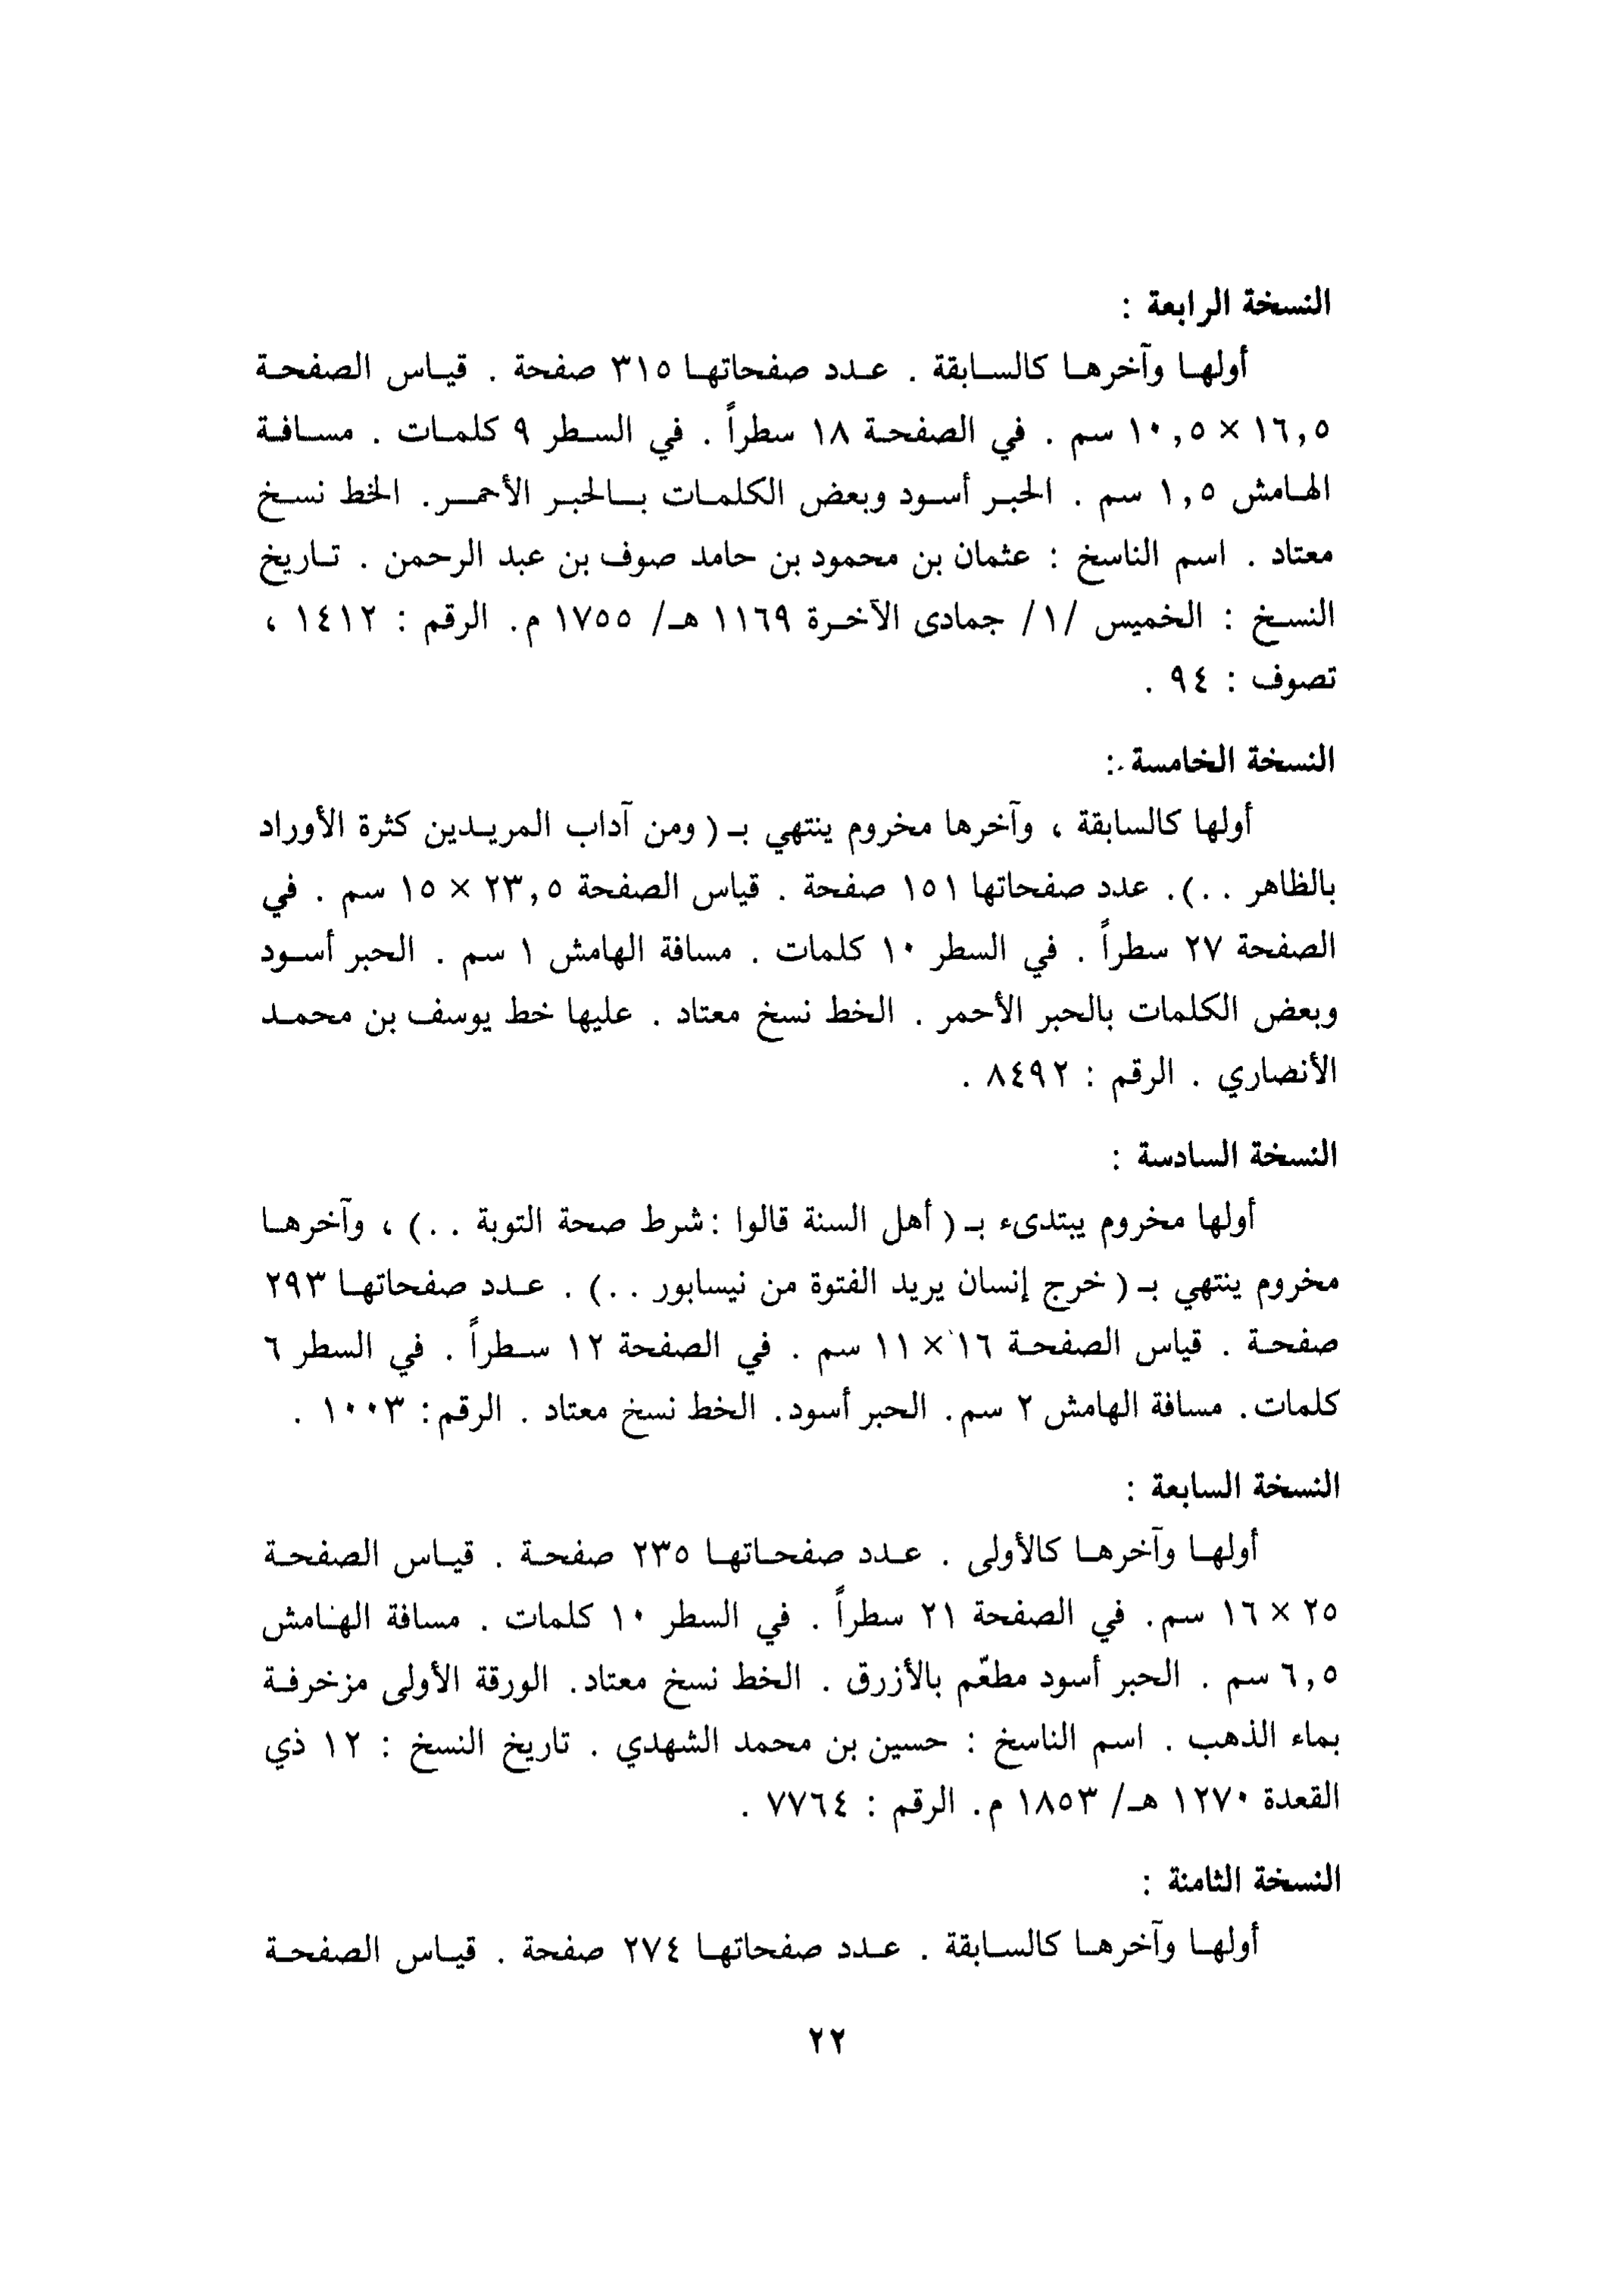 النسخة الرابعة :
أولها وآخرها كالسابقة . عدد صفحاتها ٣١٥ صفحة . قياس الصفحة
١٦,٥ × ١٠,٥ سم . في الصفحة ١٨ سطراً . في السطر ٩ كلمات . مسافة
الهامش ١,٥ سم . الحبر أسود وبعض الكلمات بالحبر الأحمر . الخط نسخ
معتاد . اسم الناسخ : عثمان بن محمود بن حامد صوف بن عبد الرحمن . تاريخ
النسخ : الخميس /١/ جمادى الآخرة ١١٦٩ هـ/ ١٧٥٥ م. الرقم : ١٤١٢ ،
تصوف : ٩٤ .
النسخة الخامسة :
أولها كالسابقة ، وآخرها مخروم ينتهي بـ ( ومن آداب المريدين كثرة الأوراد
بالظاهر . . ). عدد صفحاتها ١٥١ صفحة . قياس الصفحة ٢٣,٥ × ١٥ سم . في
الصفحة ٢٧ سطراً . في السطر ١٠ كلمات . مسافة الهامش ١ سم . الحبر أسود
وبعض الكلمات بالحبر الأحمر . الخط نسخ معتاد . عليها خط يوسف بن محمد
الأنصاري . الرقم : ٨٤٩٢ .
النسخة السادسة :
أولها مخروم يبتدىء بـ ( أهل السنة قالوا : شرط صحة التوبة . . ) ، وآخرها
مخروم ينتهي بـ ( خرج إنسان يريد الفتوة من نيسابور . . ) . عدد صفحاتها ٢٩٣
صفحة . قياس الصفحة ١٦ × ١١ سم . في الصفحة ١٢ سطراً . في السطر ٦
كلمات . مسافة الهامش ٢ سم . الحبر أسود . الخط نسخ معتاد . الرقم : ١٠٠٣ .
النسخة السابعة :
أولها وآخرها كالأولى . عدد صفحاتها ٢٣٥ صفحة . قياس الصفحة
٢٥ × ١٦ سم . في الصفحة ٢١ سطراً . في السطر ١٠ كلمات . مسافة الهامش
٦,٥ سم . الحبر أسود مطعّم بالأزرق . الخط نسخ معتاد . الورقة الأولى مزخرفة
بماء الذهب . اسم الناسخ : حسين بن محمد الشهدي . تاريخ النسخ : ١٢ ذي
القعدة ١٢٧٠ هـ/ ١٨٥٣ م. الرقم : ٧٧٦٤ .
النسخة الثامنة :
أولها وآخرها كالسابقة . عدد صفحاتها ٢٧٤ صفحة . قياس الصفحة
٢٢